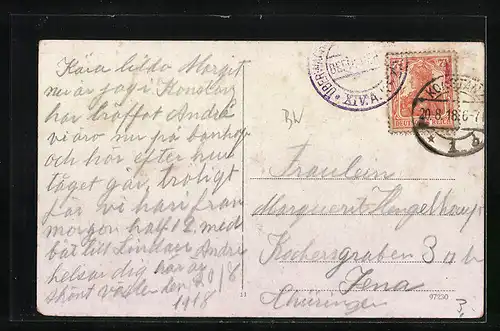 Kära lilla Margit
nu är jag i Konstanz
har träffat André
vi äro nu på banhof
och hör efter hur
tåget går, troligt
får vi fara
morgon half 12 med
båt till Lindau André
helsar dig här är
skönt väder den 20/8
1918
BEE
XIV.A.
DEUTSCHES REICH
KONSTANZ
20.8.18.6-7
1 b
BW
Fräulein
Marguerit Hengelhaupt
Kochersgraben 3
Jena
Thüringen
97230
3,-